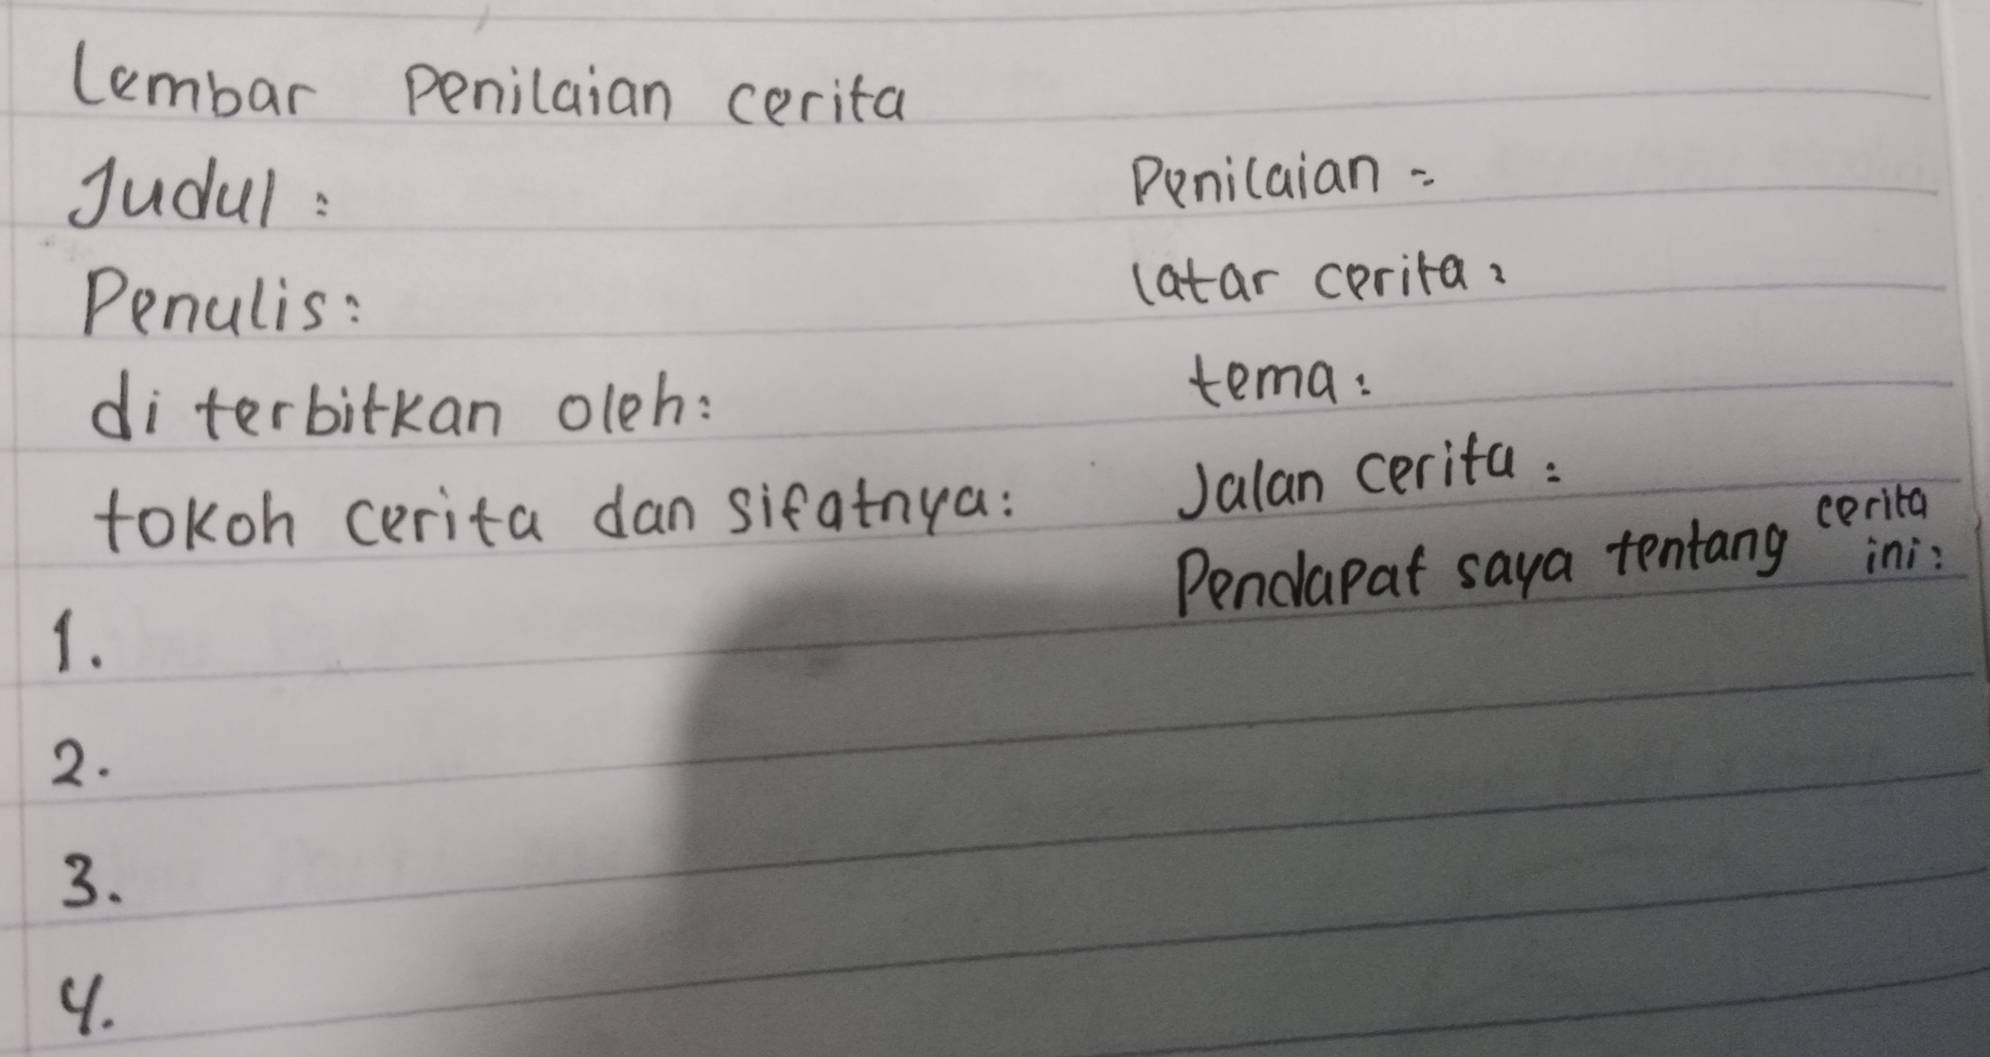 Lembar Penilaian cerita
Judul:
Penulis:
di terbitkan oleh:
tokoh cerita dan sifatnya:
1.
2.
3.
4.
Penilaian =
latar cerita:
tema:
Jalan cerita:
Pendapat saya tentang cerita
ini: